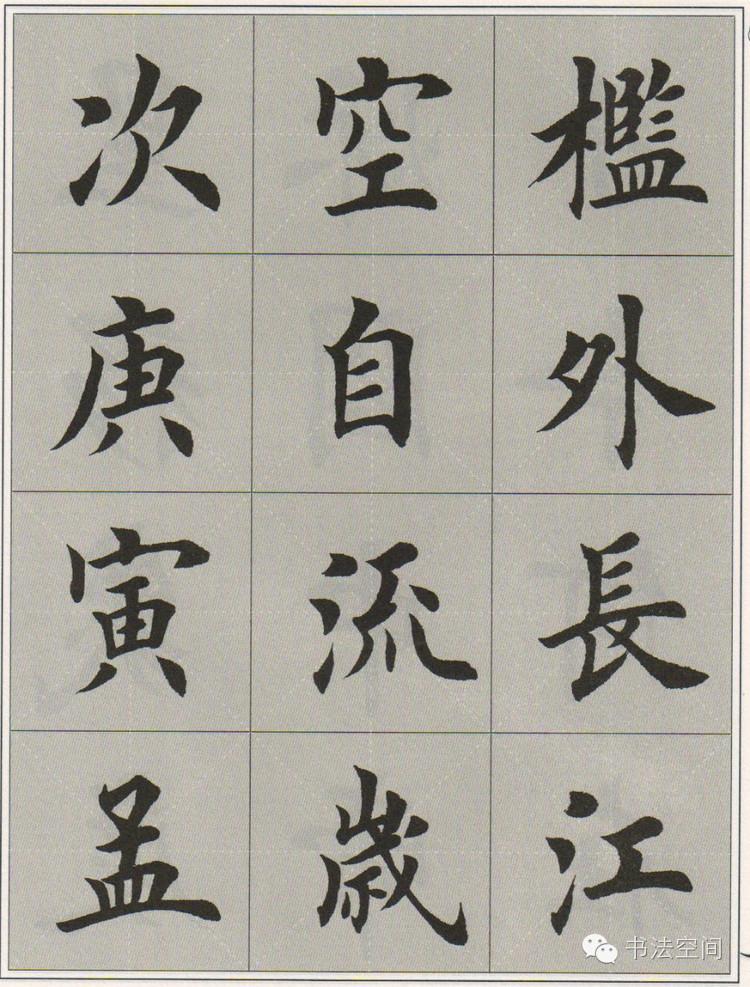 檻外長江
空自流歲
次庚寅孟
书法空间